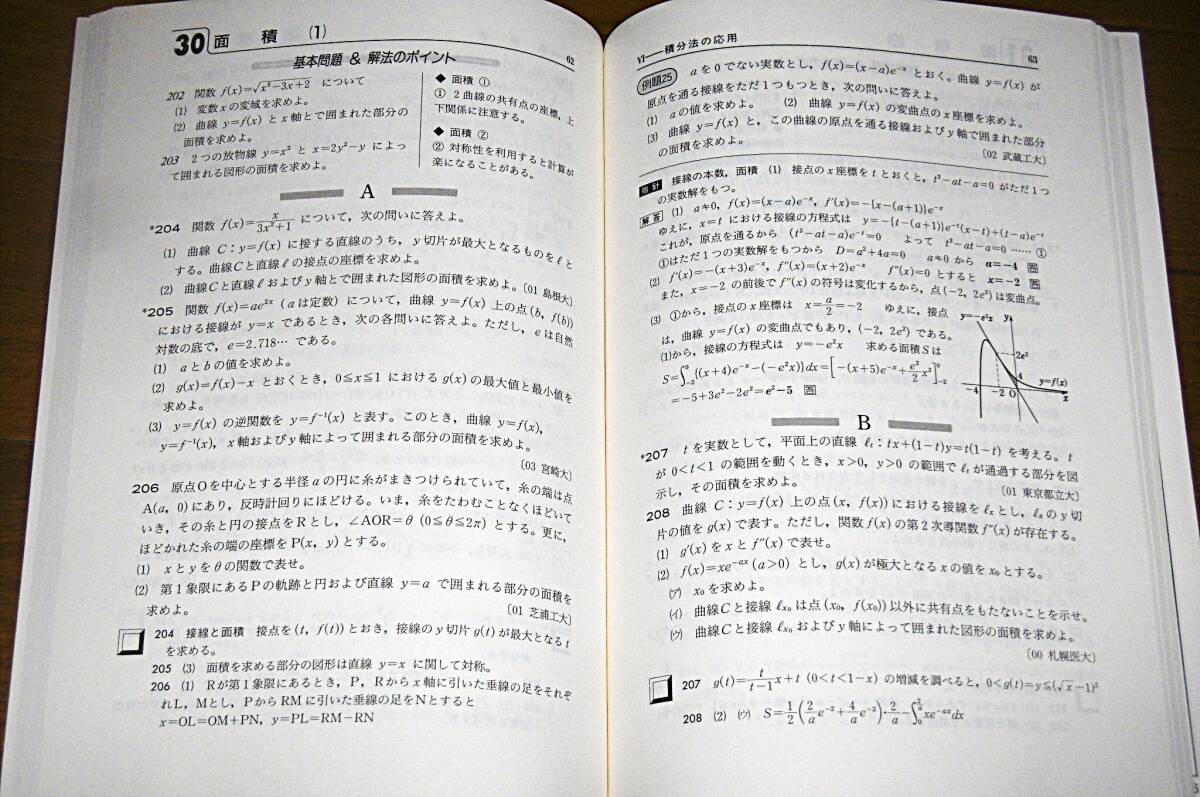 30 面 積 (1)
基本問題 & 解法のポイント
62
202 関数 f(x)=√x³-3x+2 について
(1) 変数xの変域を求めよ。
(2) 曲線 y=f(x) と x軸とで囲まれた部分の
面積を求めよ。
203 2つの放物線 y=x² と x=2y²-y によっ
て囲まれる図形の面積を求めよ。
◆ 面積 ①
① 2曲線の共有点の座標，上
下関係に注意する。
◆ 面積 ②
② 対称性を利用すると計算が
楽になることがある。
A
*204 関数 f(x)=x/(3x²+1) について，次の問いに答えよ。
(1) 曲線 C：y=f(x) に接する直線のうち，y切片が最大となるものをℓと
する。曲線Cと直線ℓの接点の座標を求めよ。
(2) 曲線Cと直線ℓおよびy軸とで囲まれた図形の面積を求めよ。〔01 島根大〕
*205 関数 f(x)=ae²ˣ (aは定数) について，曲線 y=f(x) 上の点(b, f(b))
における接線が y=x であるとき，次の各問いに答えよ。ただし，eは自然
対数の底で，e=2.718… である。
(1) aとbの値を求めよ。
(2) g(x)=f(x)-x とおくとき，0≦x≦1 における g(x) の最大値と最小値を
求めよ。
(3) y=f(x) の逆関数を y=f⁻¹(x) と表す。このとき，曲線 y=f(x),
y=f⁻¹(x)，x軸およびy軸によって囲まれる部分の面積を求めよ。
〔03 宮崎大〕
206 原点Oを中心とする半径aの円に糸がまきつけられていて，糸の端は点
A(a, 0)にあり，反時計回りにほどける。いま，糸をたわむことなくほどいて
いき，その糸と円の接点をRとし，∠AOR=θ (0≦θ≦2π) とする。更に，
ほどかれた糸の端の座標をP(x, y)とする。
(1) xとyをθの関数で表せ。
(2) 第1象限にあるPの軌跡と円および直線 y=a で囲まれる部分の面積を
求めよ。
〔01 芝浦工大〕
204 接線と面積 接点を(t, f(t))とおき，接線のy切片 g(t) が最大となるt
を求める。
205 (3) 面積を求める部分の図形は直線 y=x に関して対称。
206 (1) Rが第1象限にあるとき，P, Rからx軸に引いた垂線の足をそれぞ
れL, Mとし，PからRMに引いた垂線の足をNとすると
x=OL=OM+PN, y=PL=RM-RN
VI——積分法の応用
63
例題25 aを0でない実数とし，f(x)=(x-a)e⁻ˣ とおく。曲線 y=f(x) が
原点を通る接線をただ1つもつとき，次の問いに答えよ。
(1) aの値を求めよ。 (2) 曲線 y=f(x) の変曲点のx座標を求めよ。
(3) 曲線 y=f(x) と，この曲線の原点を通る接線およびy軸で囲まれた部分
の面積を求めよ。
〔02 武蔵工大〕
指針 接線の本数，面積 (1) 接点のx座標をtとおくと，t²-at-a=0 がただ1つ
の実数解をもつ。
解答 (1) a≠0, f(x)=(x-a)e⁻ˣ, f'(x)=-{x-(a+1)}e⁻ˣ
ゆえに，x=t における接線の方程式は y=-{t-(a+1)}e⁻ᵗ(x-t)+(t-a)e⁻ᵗ
これが，原点を通るから (t²-at-a)e⁻ᵗ=0 よって t²-at-a=0 ……①
①はただ1つの実数解をもつから D=a²+4a=0 a≠0 から a=-4 答
(2) f'(x)=-(x+3)e⁻ˣ, f''(x)=(x+2)e⁻ˣ f''(x)=0 とすると x=-2 答
また，x=-2 の前後で f''(x) の符号は変化するから，点(-2, 2e²)は変曲点。
(3) ①から，接点のx座標は x=a/2=-2 ゆえに，接点
は，曲線 y=f(x) の変曲点でもあり，(-2, 2e²) である。
(1)から，接線の方程式は y=-e²x 求める面積Sは
S=∫₋₂⁰{(x+4)e⁻ˣ-(-e²x)}dx=[-(x+5)e⁻ˣ+e²/2 x²]₋₂⁰
=-5+3e²-2e²=e²-5 答
y=-e²x
y
2e²
4
y=f(x)
-4
-2
O
x
B
*207 tを実数として，平面上の直線 ℓₜ：tx+(1-t)y=t(1-t) を考える。t
が 0<t<1 の範囲を動くとき，x>0, y>0 の範囲で ℓₜ が通過する部分を図
示し，その面積を求めよ。
〔01 東京都立大〕
208 曲線 C：y=f(x) 上の点(x, f(x))における接線をℓₓとし，ℓₓのy切
片の値をg(x)で表す。ただし，関数f(x)の第2次導関数f''(x)が存在する。
(1) g'(x)をxとf''(x)で表せ。
(2) f(x)=xe⁻ᵃˣ (a>0) とし，g(x)が極大となるxの値をx₀とする。
(ア) x₀を求めよ。
(イ) 曲線Cと接線ℓx₀は点(x₀, f(x₀))以外に共有点をもたないことを示せ。
(ウ) 曲線Cと接線ℓx₀およびy軸によって囲まれた図形の面積を求めよ。
〔00 札幌医大〕
207 g(t)=t/(t-1) x+t (0<t<1-x) の増減を調べると，0<g(t)=y≦(√x-1)²
208 (2) (ウ) S=1/2(2/a e⁻²+4/a e⁻²)・2/a-∫₀^(2/a) xe⁻ᵃˣdx